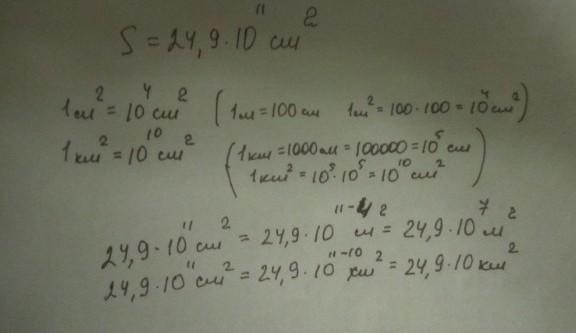 S = 24,9·10¹¹ см²
1м² = 10⁴ см² (1м = 100 см 1м² = 100·100 = 10⁴ см²)
1км² = 10¹⁰ см² (1км = 1000м = 100000 = 10⁵ см
1км² = 10⁵·10⁵ = 10¹⁰ см²)
24,9·10¹¹ см² = 24,9·10¹¹⁻⁴ м² = 24,9·10⁷ м²
24,9·10¹¹ см² = 24,9·10¹¹⁻¹⁰ км² = 24,9·10 км²